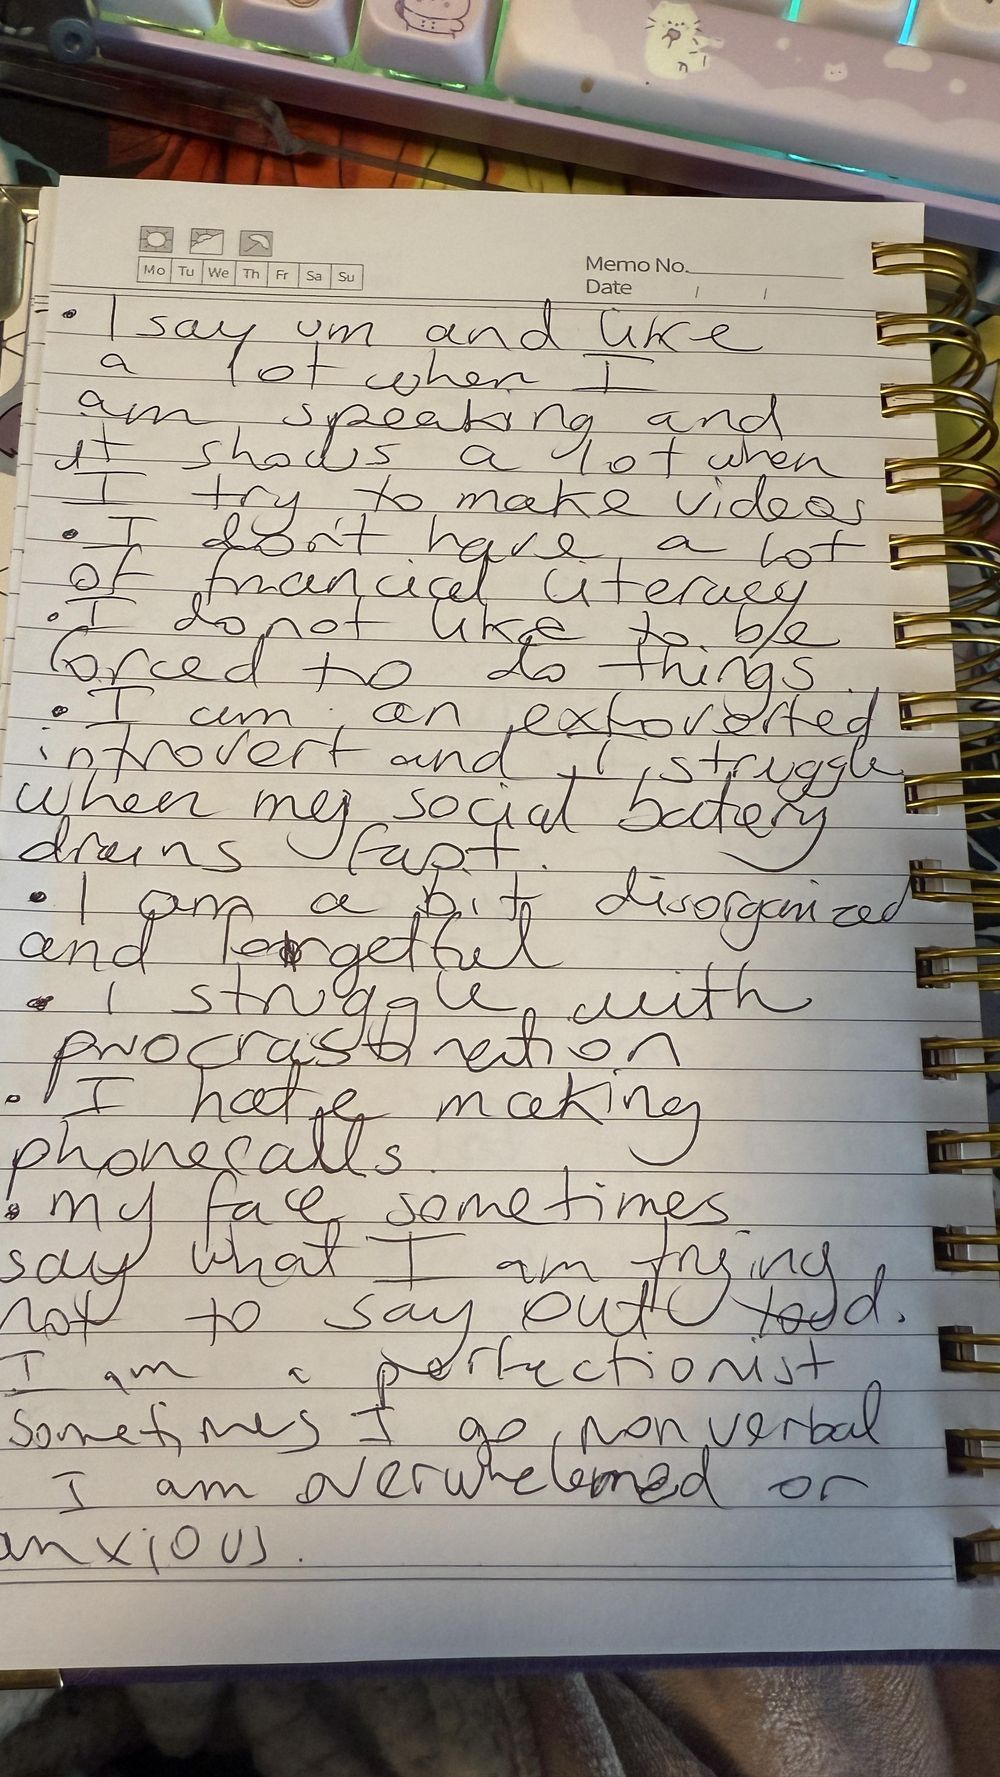 Mo Tu We Th Fr Sa Su
Memo No.
Date / /
• I say um and like
a lot when I
am speaking and
it shows a lot when
I try to make videos
• I don't have a lot
of financial literacy
• I do not like to be
forced to do things.
• I am an extroverted
introvert and I struggle
when my social battery
drains fast.
• I am a bit disorganized
and forgetful
• I struggle with
procrastination
• I hate making
phonecalls.
• my face sometimes
say what I am trying
not to say out loud.
I am a perfectionist
sometimes I go nonverbal
I am overwhelemed or
anxious.